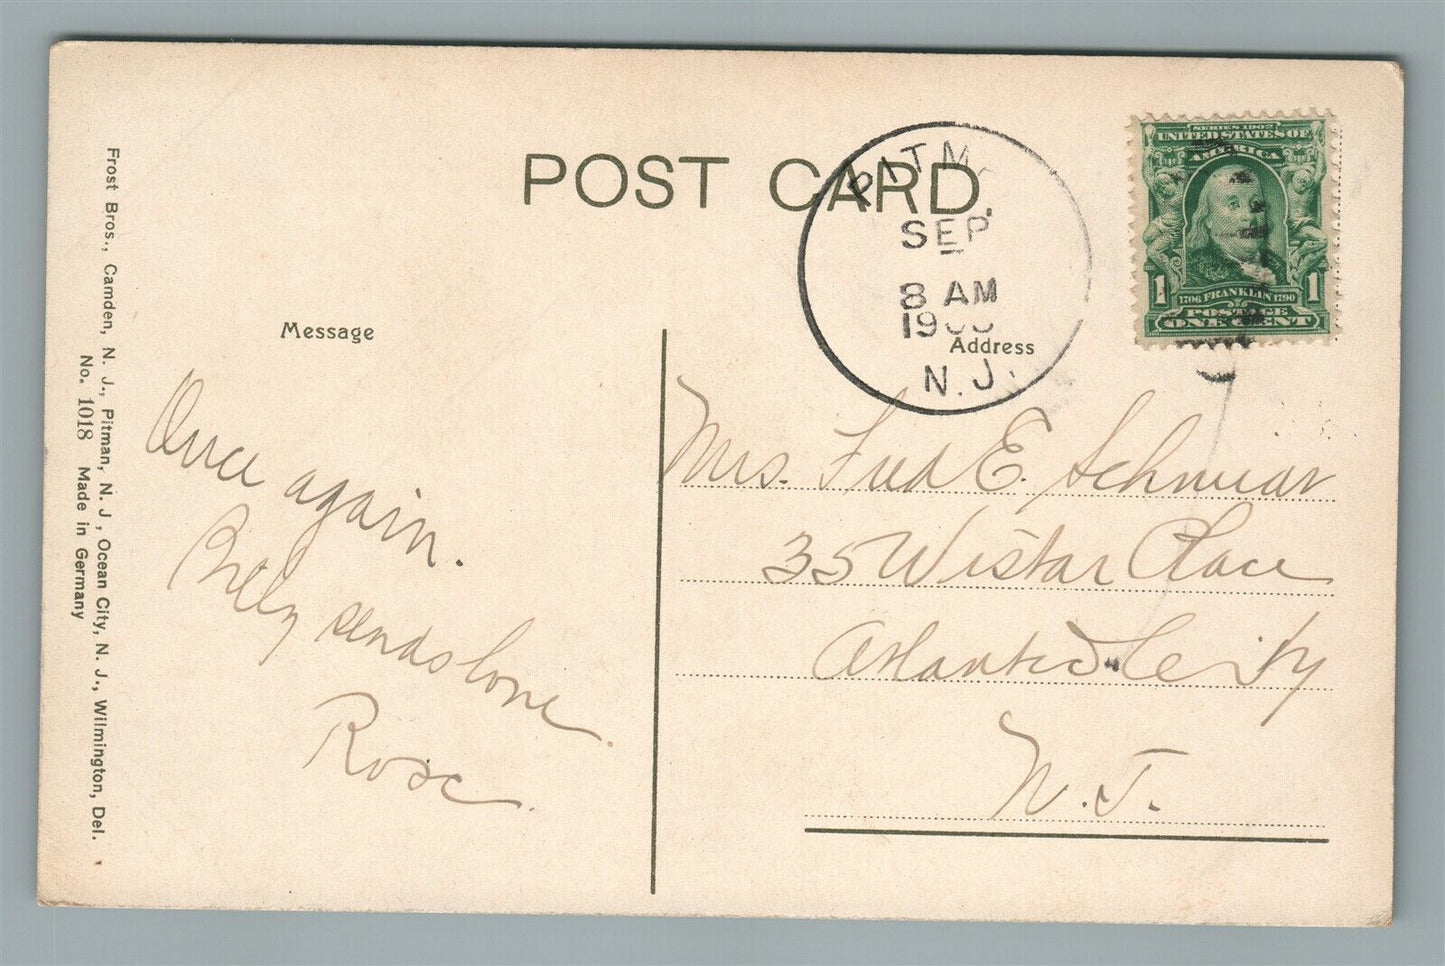 POST CARD.
PITM
SEP
8 AM
19
N. J.
SERIES 1902
UNITED STATES OF
AMERICA
1 1706 FRANKLIN 1790 1
POSTAGE
ONE CENT
Message
Address
Once again.
Billy sends love
Rose.
Mrs. Fred E. Schmidt
35 Wistar Place
Atlantic City
N. J.
Frost Bros., Camden, N. J., Pitman, N. J., Ocean City, N. J., Wilmington, Del.
No. 1018 Made in Germany